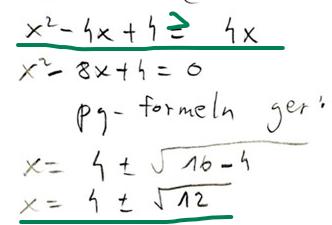 x² - 4x + 4 ≥ 4x
x² - 8x + 4 = 0
pq-formeln ger:
x = 4 ± √16-4
x = 4 ± √12